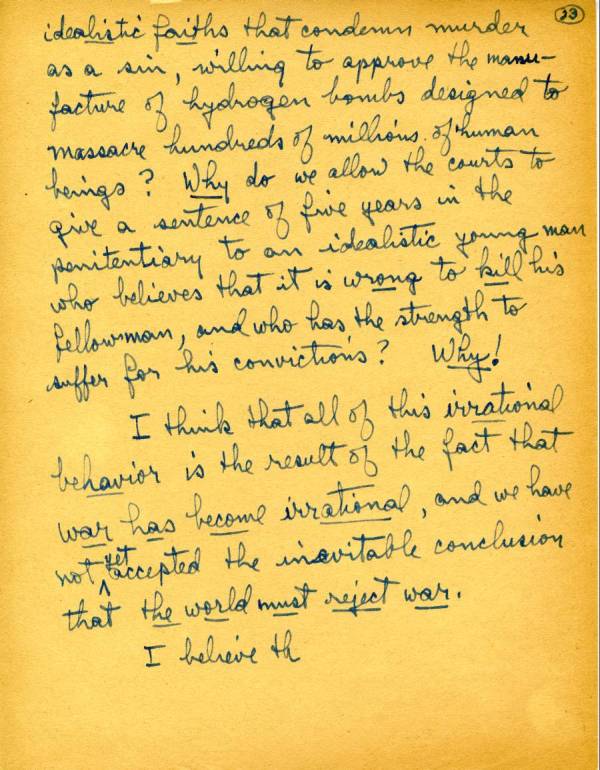 23
idealistic faiths that condemn murder
as a sin, willing to approve the manu-
facture of hydrogen bombs designed to
massacre hundreds of millions of human
beings? Why do we allow the courts to
give a sentence of five years in the
penitentiary to an idealistic young man
who believes that it is wrong to kill his
fellowman, and who has the strength to
suffer for his convictions? Why!
I think that all of this irrational
behavior is the result of the fact that
war has become irrational, and we have
not yet accepted the inevitable conclusion
that the world must reject war.
I believe th